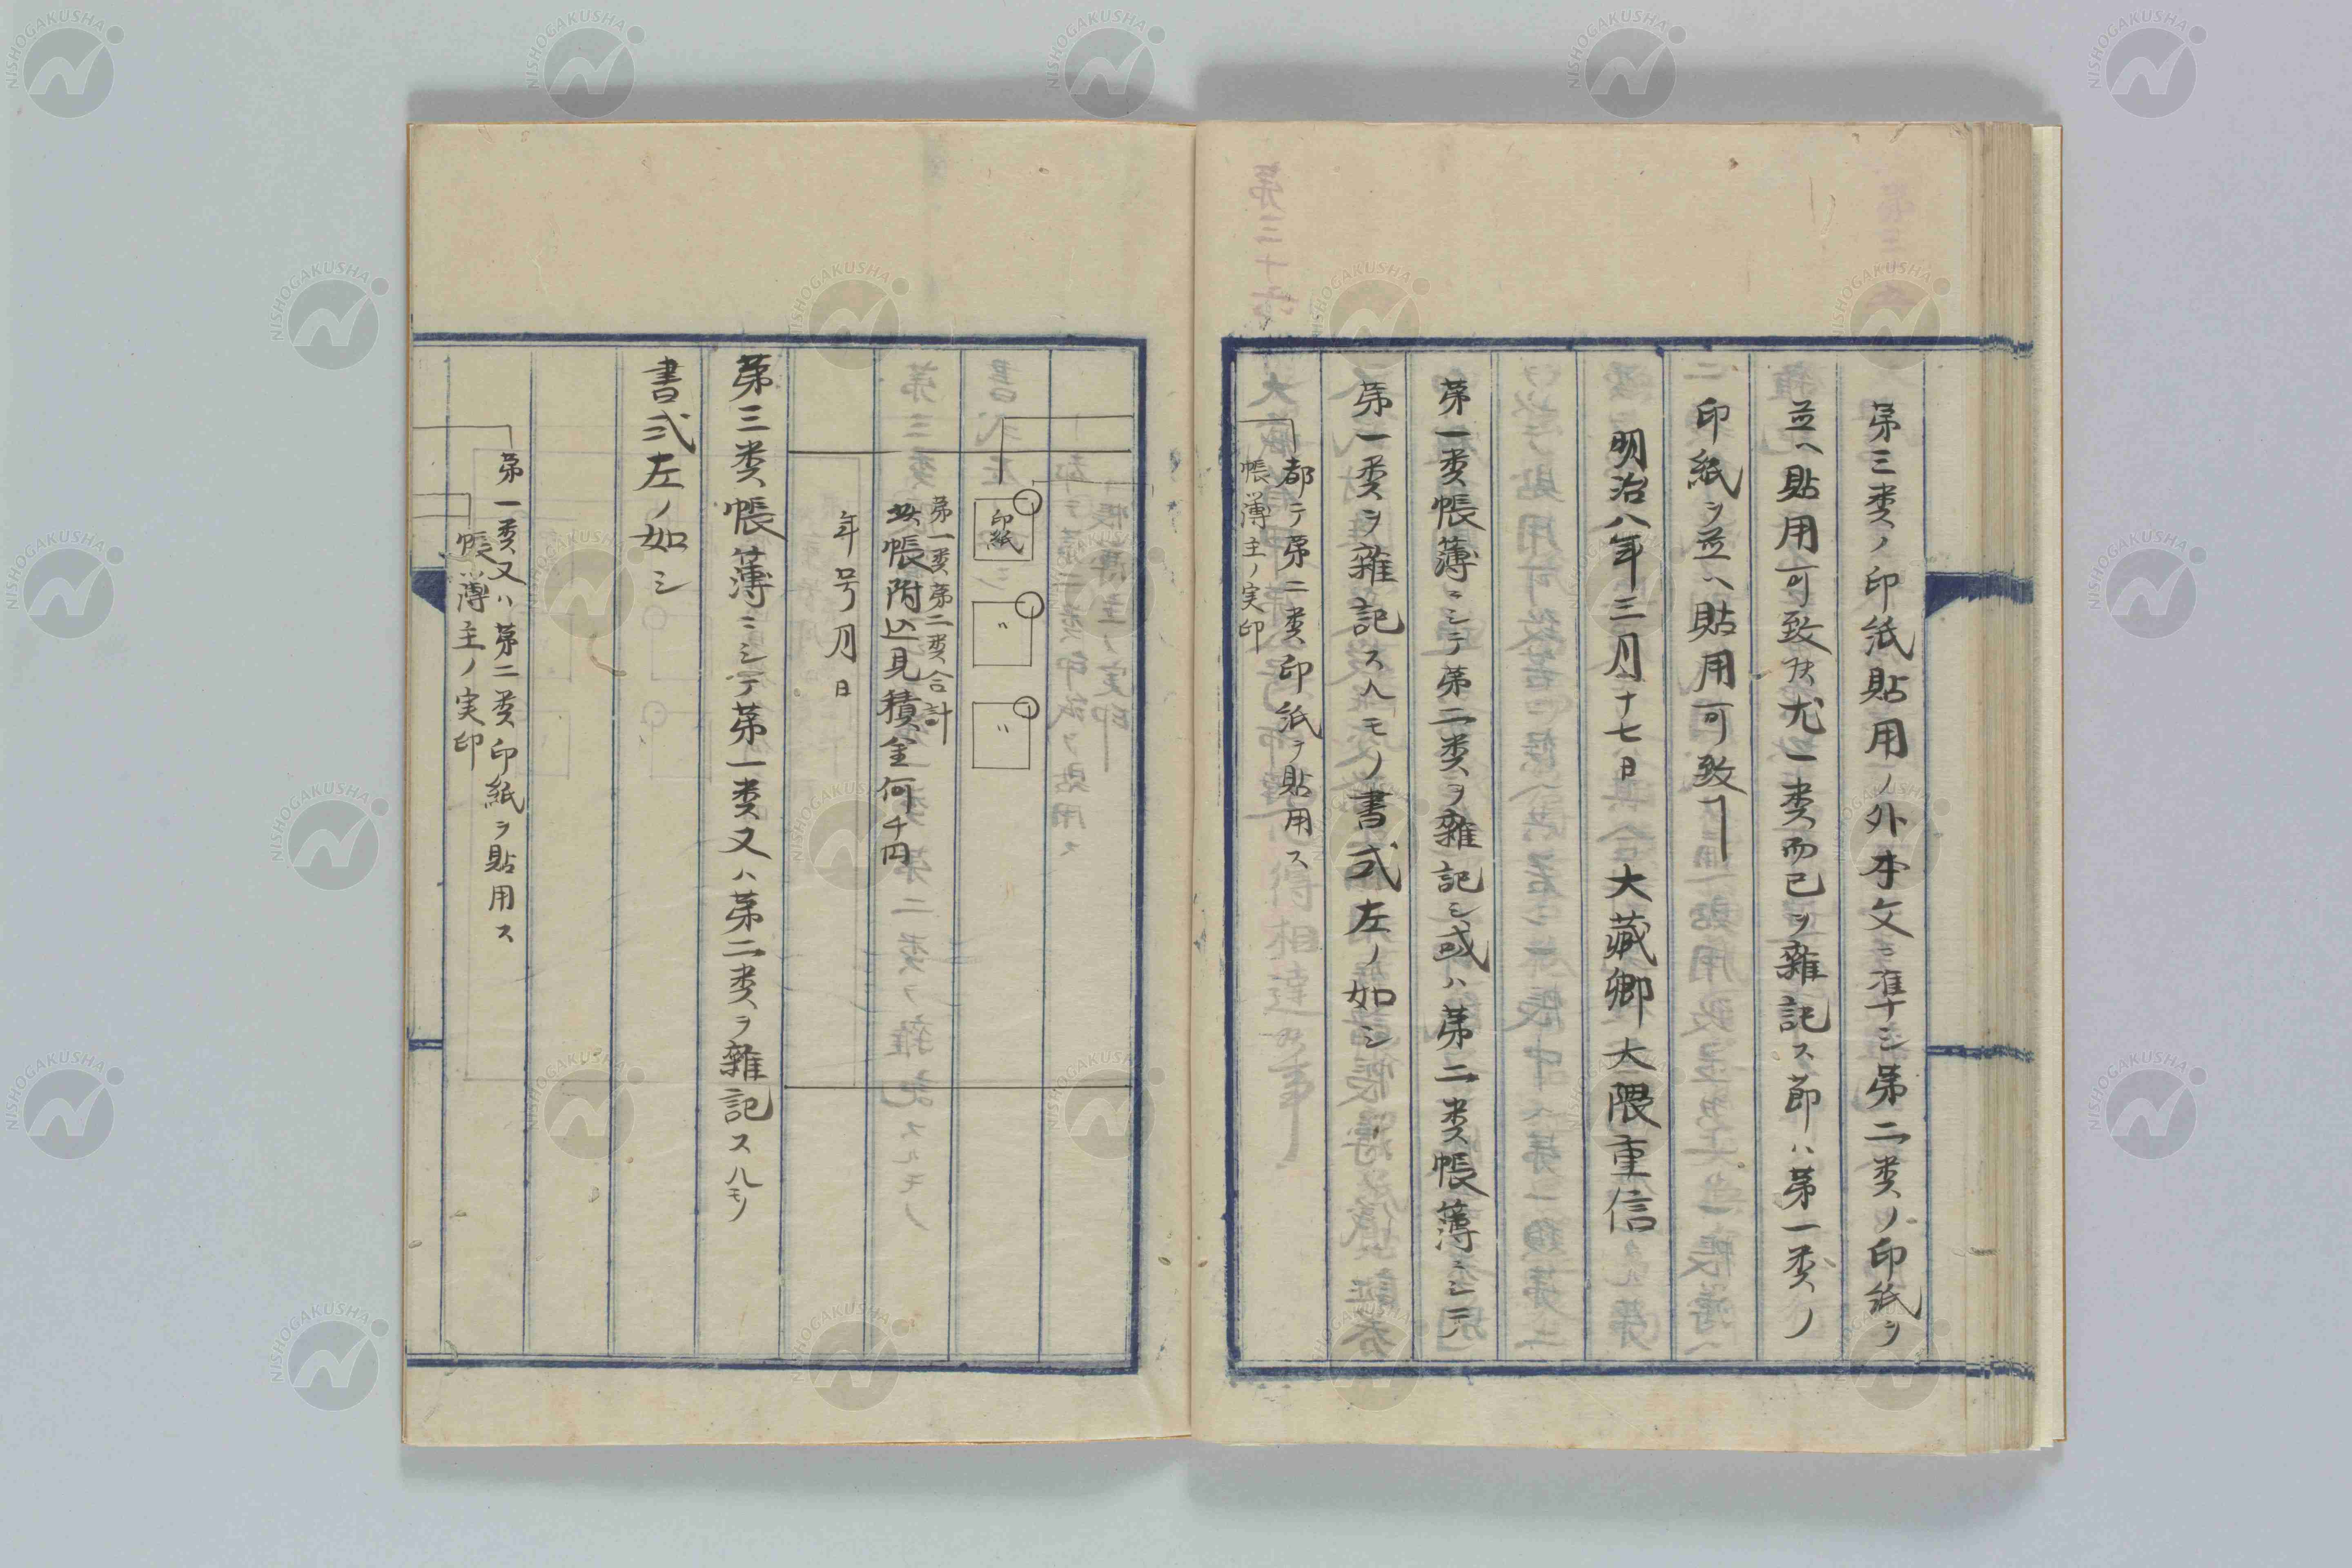 第三类ノ印紙貼用ノ外本文ニ准シ第二类ノ印紙ヲ
並ヘ貼用可致尤一类而已ヲ雜記ス節ハ第一类ノ
印紙ヲ並ヘ貼用可致
明治八年三月十七日 大藏卿大隈重信
第一类帳簿ニシテ第二类ヲ雜記シ或ハ第二类帳簿ニシテ
第一类ヲ雜記スヘモノ書式左ノ如シ
都テ第二类印紙ヲ貼用ス
帳簿主ノ実印
印紙
〃
〃
第一类第二类合計
此帳附込見積金何千円
年号月日
第三类帳簿ニシテ第一类又ハ第二类ヲ雜記スルモノ
書式左ノ如シ
第一类又ハ第二类印紙ヲ貼用ス
帳簿主ノ実印
NISHOGAKUSHA